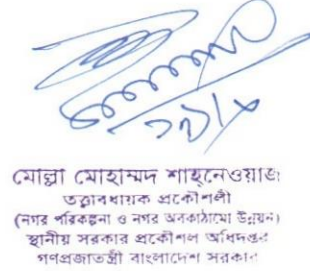 মোল্লা মোহাম্মদ শাহ্‌নেওয়াজ
তত্ত্বাবধায়ক প্রকৌশলী
(নগর পরিকল্পনা ও নগর অবকাঠামো উন্নয়ন)
স্থানীয় সরকার প্রকৌশল অধিদপ্তর
গণপ্রজাতন্ত্রী বাংলাদেশ সরকার